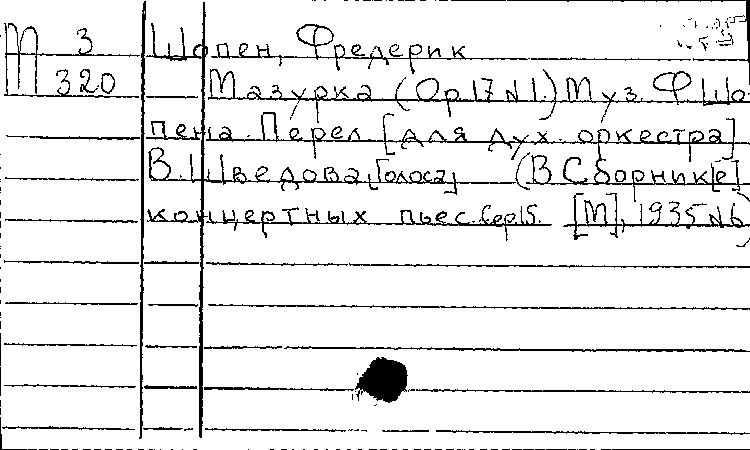 М 3 Шопен, Фредерик
320 Мазурка (Op.17 N1.) Муз. Ф. Шо-
пена. Перел. [для дух. оркестра]
В. Шведова, [голоса] (В Сборник[е]
концертных пьес. Сер 15. [М], 1935 N6)